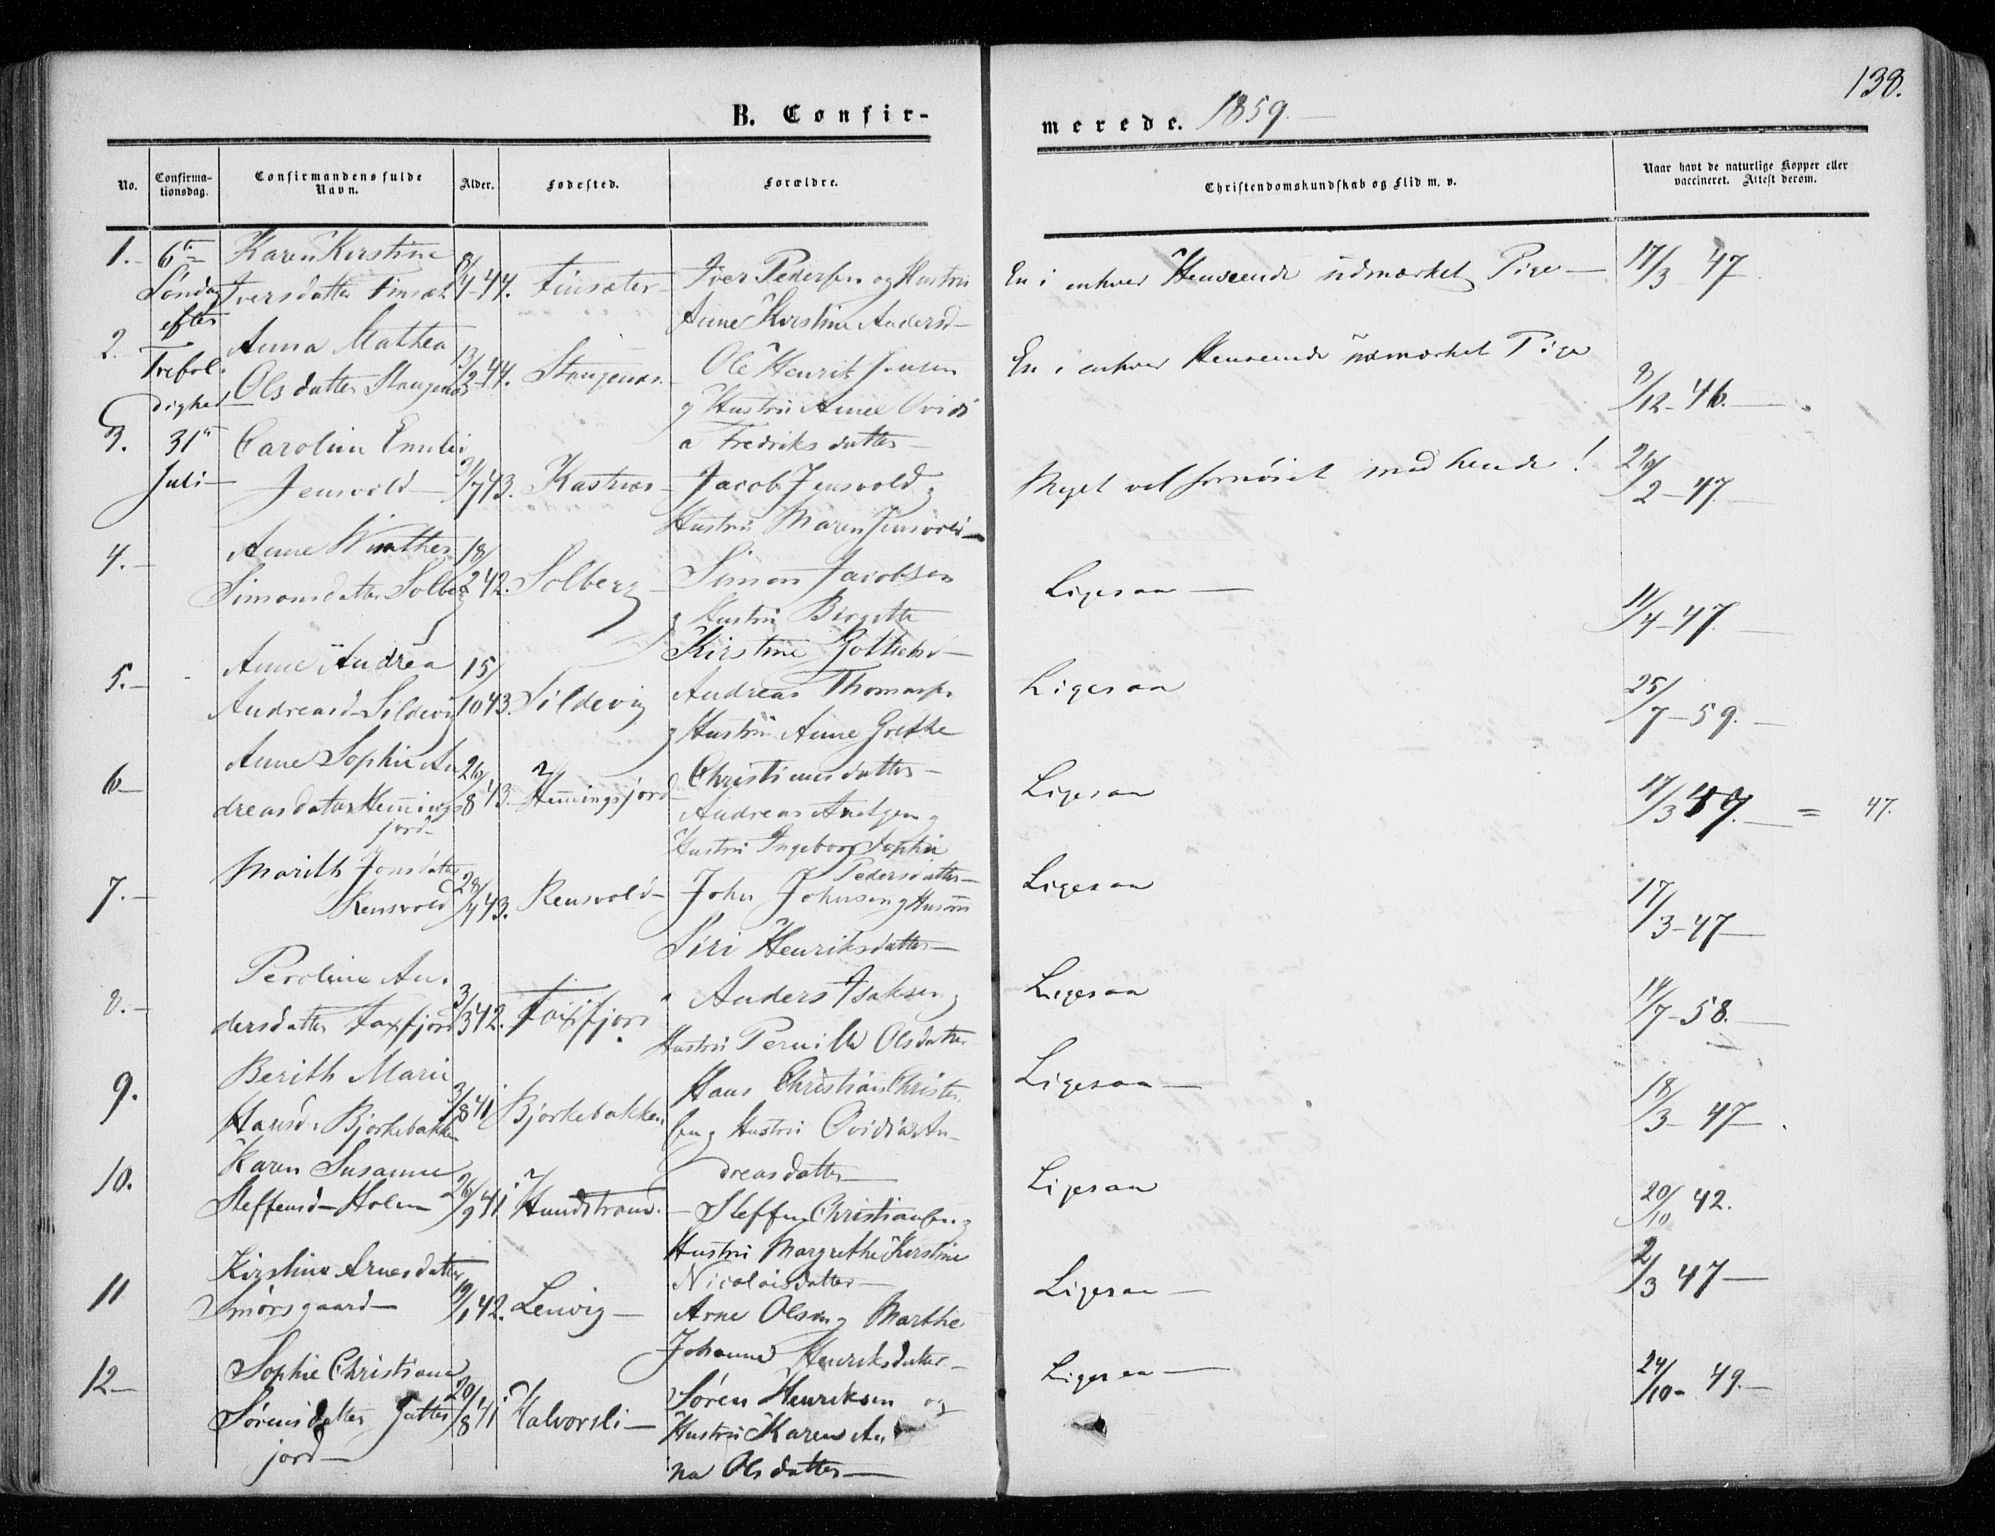 138.
B. Confir-
merede. 1859.
No.
Confirma-
tionsdag.
Confirmandens fulde
Navn.
Alder.
Fødested.
Forældre.
Christendomskundskab og Flid m. v.
Naar havt de naturlige Kopper eller
vaccineret. Attest derom.
1. 6te Karen Kirstine
Søndag Iversdatter 8/1-44. Finsæter Iver Pedersen og Hustru En i enhver Henseende udmærket Pige 17/3 47
efter Anne Kirstine Andersd
2. Trefol- Anna Mathea
dighed Olsdatter Stangenæs 13/2 44. Stangenæs Ole Henrik Jensen En i enhver Henseende udmærket Pige 9/12-46.
g Hustru Anne Ovidi
a Fredriksdatter
3. 31te Caroline Emilie
Juli Jensvold /7 43. Kastnæs Jacob Jensvold g Meget vel fornøiet med hende! 26/2-47
Hustru Maren Jensvold
4. Anne Winther 18/
Simonsdatter Solberg 2 42. Solberg Simon Jacobsen Ligesaa 11/4-47
g Hustru Birgitte
Kirstine Gottliebsd
5. Anne Andrea 15/
Andreasd Sildevig 10 43. Sildevig Andreas Thomas. Ligesaa 25/7-59.
g Hustru Anne Grethe
Christiansdatter
6 Anne Sophie An
dreasdatter Hemmings 26/8 43. Hemmingsjord Andreas g Ligesaa 17/3 47. = 47.
jord
Hustru Ingeborg Sophie
Pedersdatter
7. Marith Jonsdatter
Rensvold 28/4 43. Rensvold John Johnsen g Hustru Ligesaa 17/3-47
Siri Henriksdatter
8. Peroline An-
dersdatter Faxfjord 3/3 42. Faxfjord Anders Isaksen g Ligesaa 19/7-58.
Hustru Pernille Olsdatter
9. Berith Marie
Hansd. Bjorkebakken 3/8 41 Bjorkebakken Hans Christian Christen Ligesaa 18/3-47
sen g Hustru Ovidia An
dreasdatter
10. Karen Susanne
Steffensd Holm 26/9 41 Hundstrand. Steffen Christiansen g Ligesaa 20/10 42.
Hustru Margrethe Kirstine
Nicolaisdatter
11 Kirstine Arnesdatter
Smørsgaard 19/1 42. Lenvig Arne Olsen g Marthe Ligesaa 2/3 47
Johanne Henriksdatter
12 Sophie Christiane
Sørensdatter 20/8 41 Halvorsli Søren Henriksen og Ligesaa 24/10-49.
jord Hustru Karen An
na Olsdatter